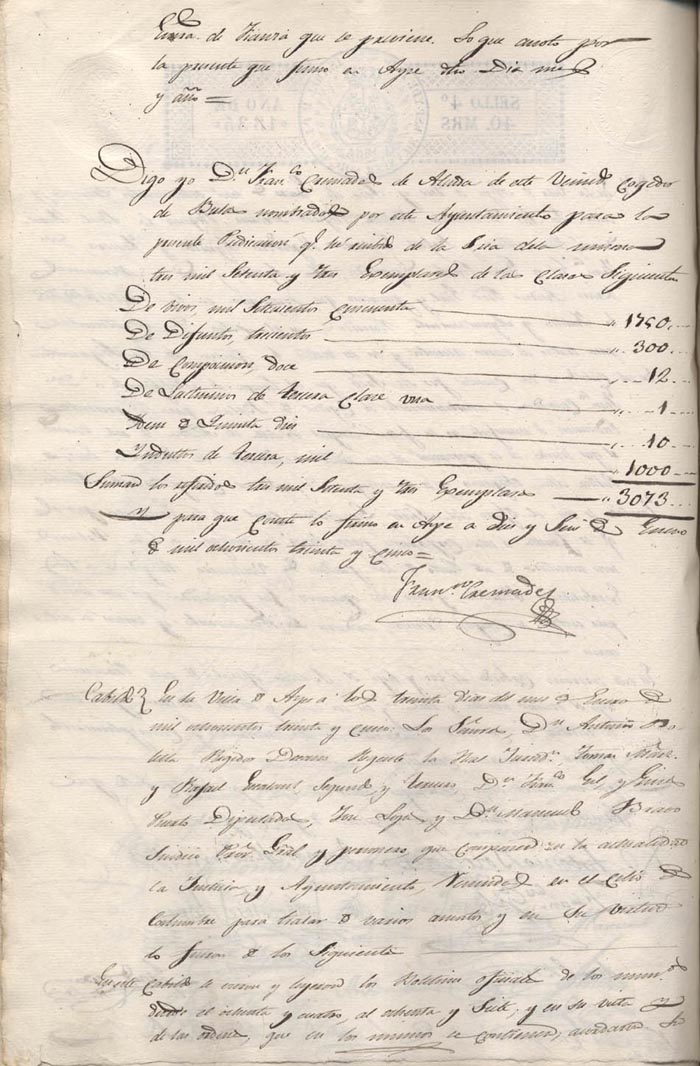 que lo previene. Lo que anoto por
la presente que firmo en Ayre dho Dia mes
y año =
SELLO 4º
40. MRS
AÑO DE
1835
Digo yo Dn. Franco. Cremades de Alcdia de este Vecind. Cogedor
de Bula nombrado por este Ayuntamiento para la
presente Predicacion qe. he recibido de la
tres mil Setenta y tres Exemplares de las Clases Siguientes
De vivos, mil Setecientos Cincuenta 1750
De Difuntos, trecientos 300
De Composicion, doce 12
De Lacticinios de tercera Clase una 1
Idem de Quinta diez 10
Yndultos de tercera, mil 1000
Suman los referidos tres mil Setenta y tres Exemplares 3073
Y para que Conste lo firmo en Aspe a Diez y Seis de Enero
de mil ochocientos treinta y Cinco =
Franco. Cremades
Cabildo En la Villa de Aspe a los treinta dias del mes de Enero de
mil ochocientos treinta y cinco: Los Señores, Dn. Antonio
Regidor Decano Regente la Real Jurisdn. Tomas
y Rafael Segundo y Tercero, Dn. Franco. Gil, y
Diputados, Jose Lopez y Dn. Manuel Bravo
Sindico Pror. Gral y personero, que componen en la actualidad
la Justicia y Ayuntamiento, Reunidos en el
Costumbre para tratar de varios asuntos y en su virtud
lo hicieron de los Siguientes
En este Cabildo se vieron y leyeron los Boletines oficiales de los
desde el ochenta y cuatro, al ochenta y Siete, y en su vista y
de las ordenes, que en los mismos se contienen, acordaron Se